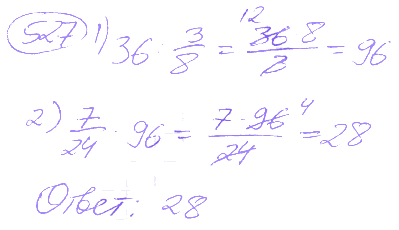 527 1) 36 : 3/8 = 36 8 / 3 = 96 12
2) 7/24 · 96 = 7 · 96 / 24 = 28 4
Ответ: 28